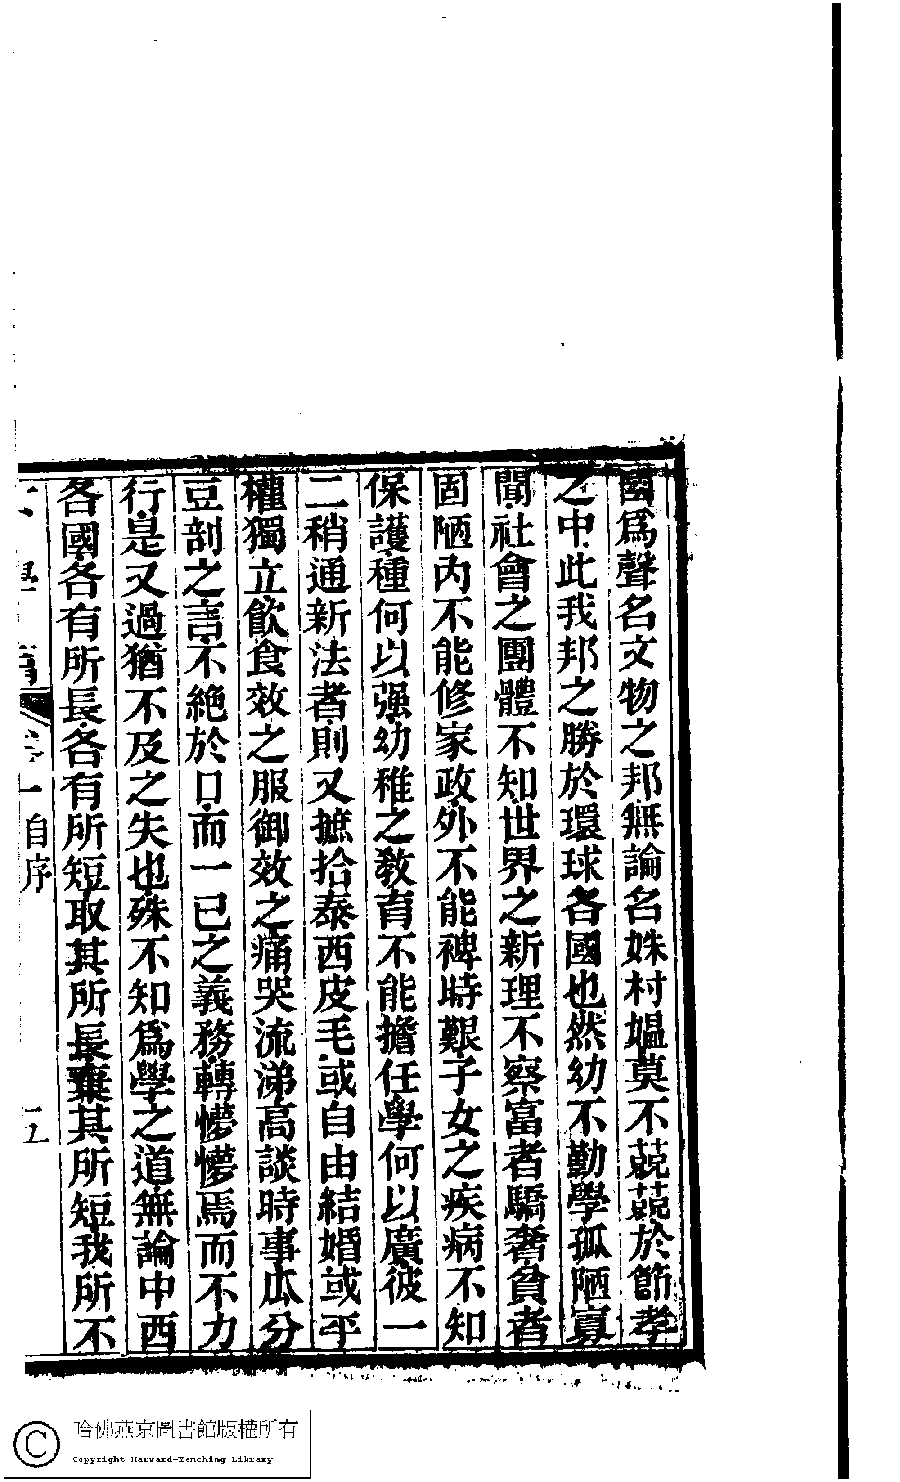 國爲聲名文物之邦無論名姝村媼莫不兢兢於節孝
之中此我邦之勝於環球各國也然幼不勤學孤陋寡
聞社會之團體不知世界之新理不察富者驕奢貧者
固陋内不能修家政外不能裨時艱子女之疾病不知
保護種何以强幼稚之敎育不能擔任學何以廣彼一
二稍通新法者則又摭拾泰西皮毛或自由結婚或平
權獨立飮食效之服御效之痛哭流涕高談時事瓜分
豆剖之言不絶於口而一已之義務轉懜懜焉而不力
行是又過猶不及之失也殊不知爲學之道無論中西
各國各有所長各有所短取其所長棄其所短我所不
學 卷一自序 五
哈佛燕京圖書館版權所有
Copyright Harvard-Yenching Library